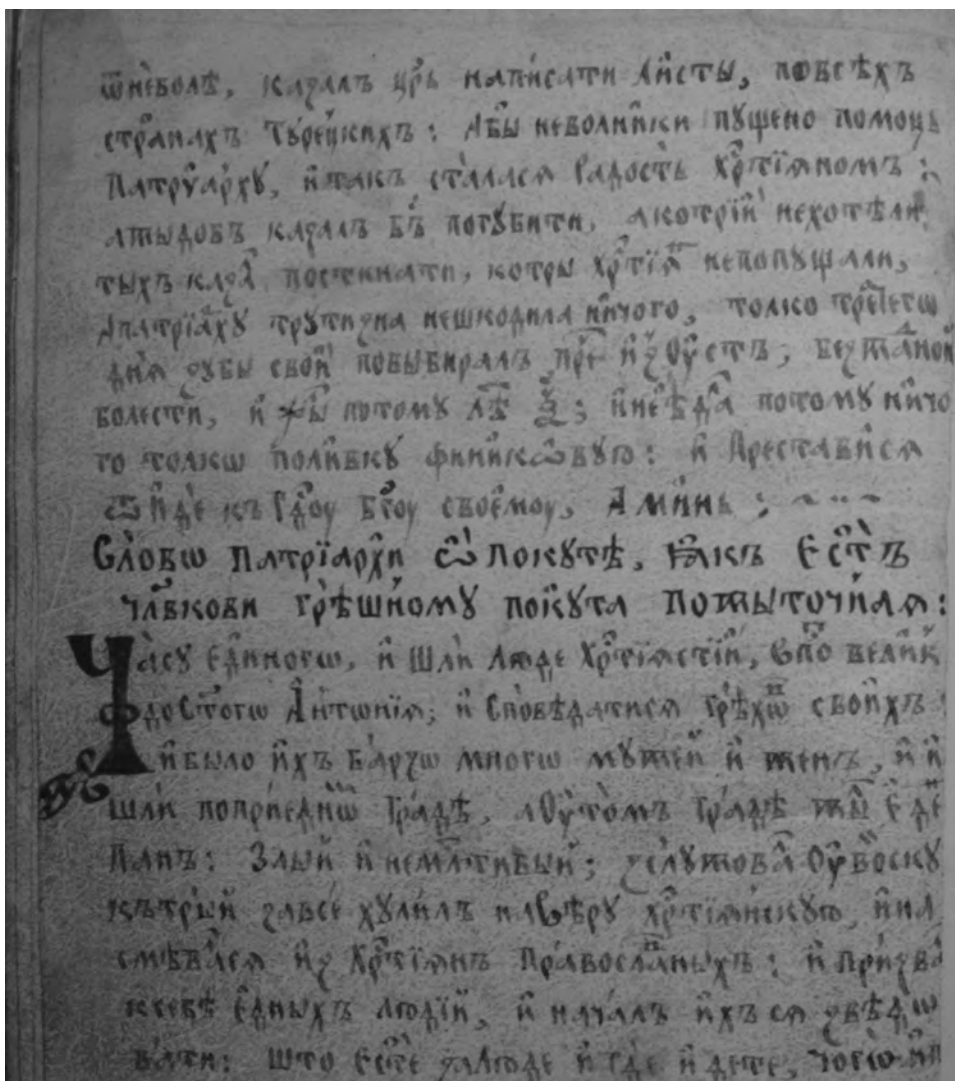 ѿневолѣ, казалъ црь написати листы, повсѣхъ
странахъ Турецкихъ: Абы неволники пущено помоцъ
Патрїарху, итакъ сталася Радость хрⷭтїяномъ:
ажыдовъ казалъ погубити, акотрїи нехотѣли
тыхъ казаⷧ постинати, котры хрⷭтїаⷩ непопущали,
Апатрїаⷬху трутизна нешкодила ничого, толко
дня зубы свои повыбиралъ изъ оустъ; безжаⷣной
болести, и жиⷧ потому лѣⷮ; инеѣдаⷧ потому ничо
го толкѡ поливку финикѡвую: и Преставися
ѿиде къ Гдⷭоу Бгоу своемоу, Аминь:
Словѡ патрїархи ѡ покутѣ, якъ Естъ
члвкови грѣшному покута пожыточная:
Часу единогѡ, и шли люде хрⷭтїястїи, великⷣ
доСтогѡ Антѡнїя; и Сповѣдатися грѣхѡⷡ своихъ:
ибыло ихъ барзѡ многѡ мужей и женъ, и и
шли градѣ, аоутомъ градѣ жиⷧ едеⷩ
Панъ: Злый и немлⷭтивый; оу
кътрый завсе хулилъ навѣру хрⷭтїянскую, ина
смѣваⷧся изъ хрⷭтїянъ Православныхъ: и призваⷧ
ксебѣ едныхъ людїй, и началъ ихъся звѣдѡ
вати: што Есте залюде и где идете, чогѡ